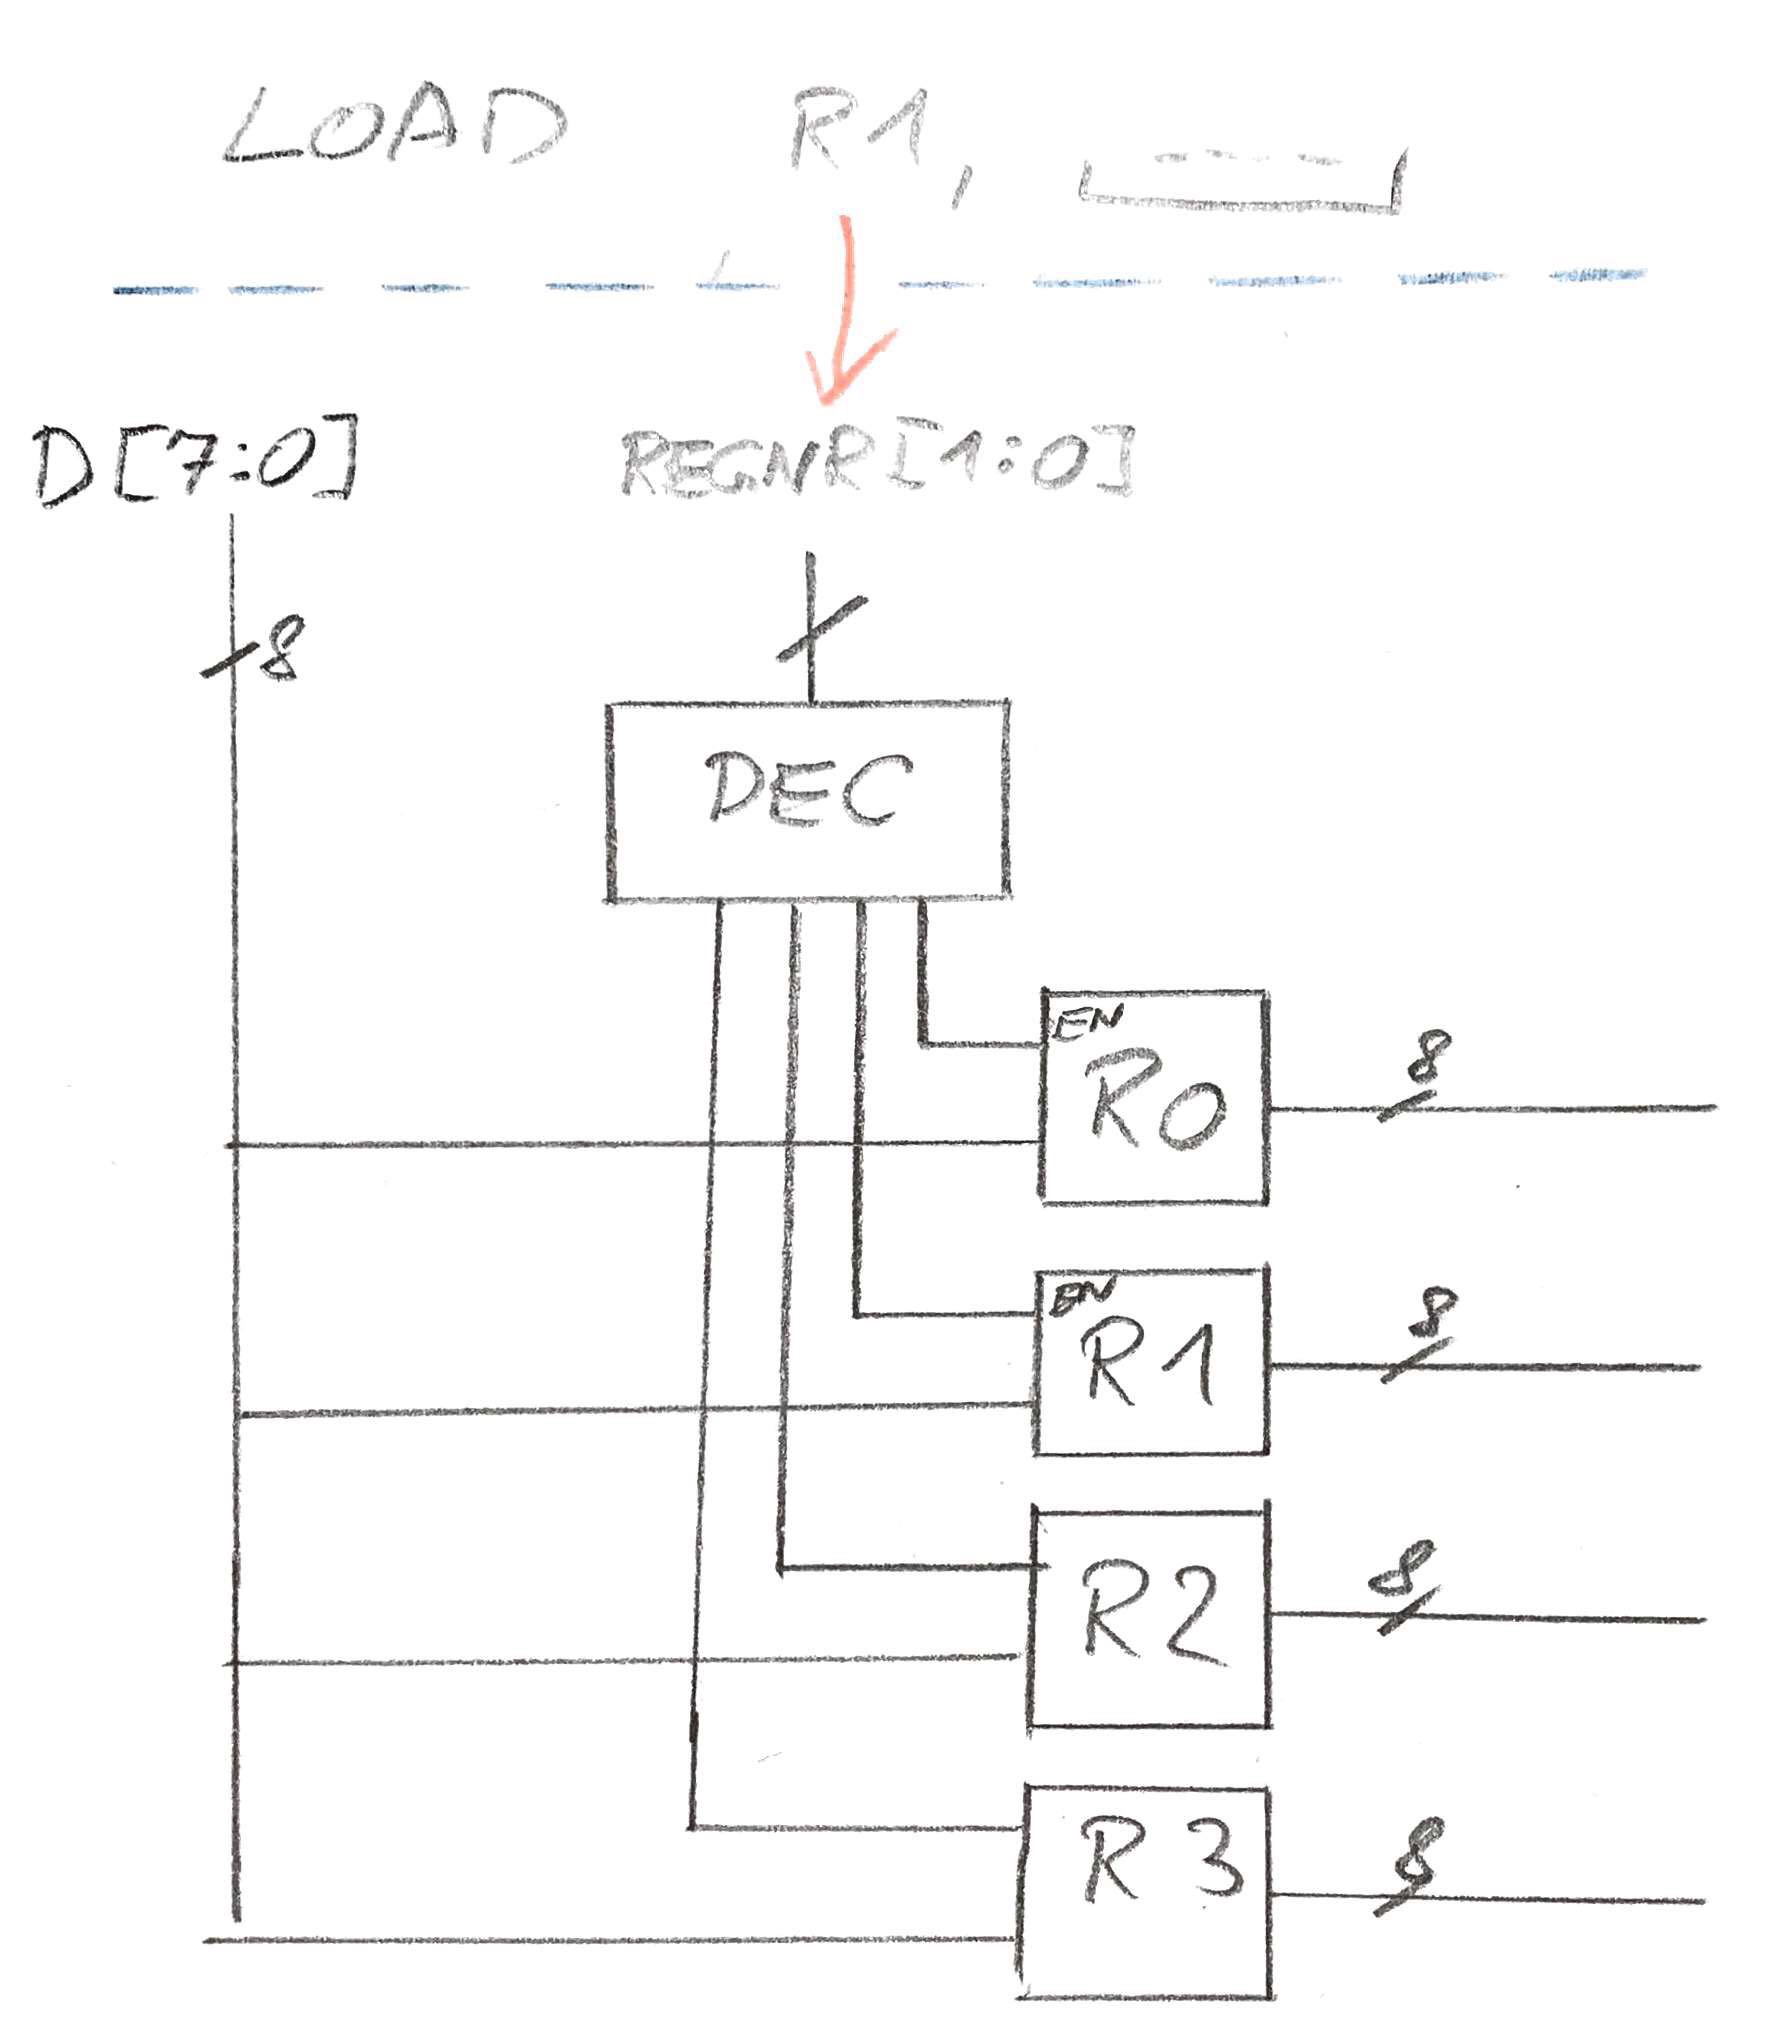 LOAD R1,
D[7:0] REGNR[1:0]
8
DEC
EN
R0 8
EN
R1 8
R2 8
R3 8